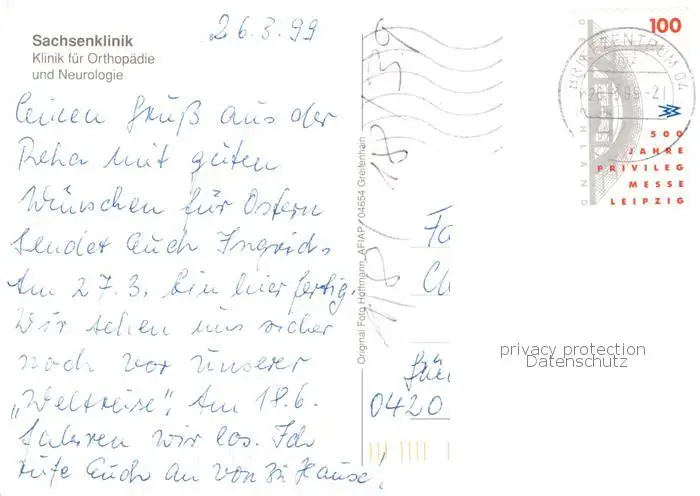 26.3.99
Sachsenklinik
Klinik für Orthopädie
und Neurologie
Einen Gruß aus der
Reha mit guten
Wünschen für Ostern
sendet Euch Ingrid.
Am 27.3. bin hier fertig.
Wir sehen uns sicher
noch vor unserer
„Weltreise“, Am 18.6.
fahren wir los. Ich
rufe Euch an von zu Hause!
Original Foto Hoffmann, AFIAP / 04654 Greifenhain
100
DEUTSCHLAND
500
JAHRE
PRIVILEG
MESSE
LEIPZIG
BRIEFZENTRUM 04
26.3.99-21
Fa
0420
privacy protection
Datenschutz